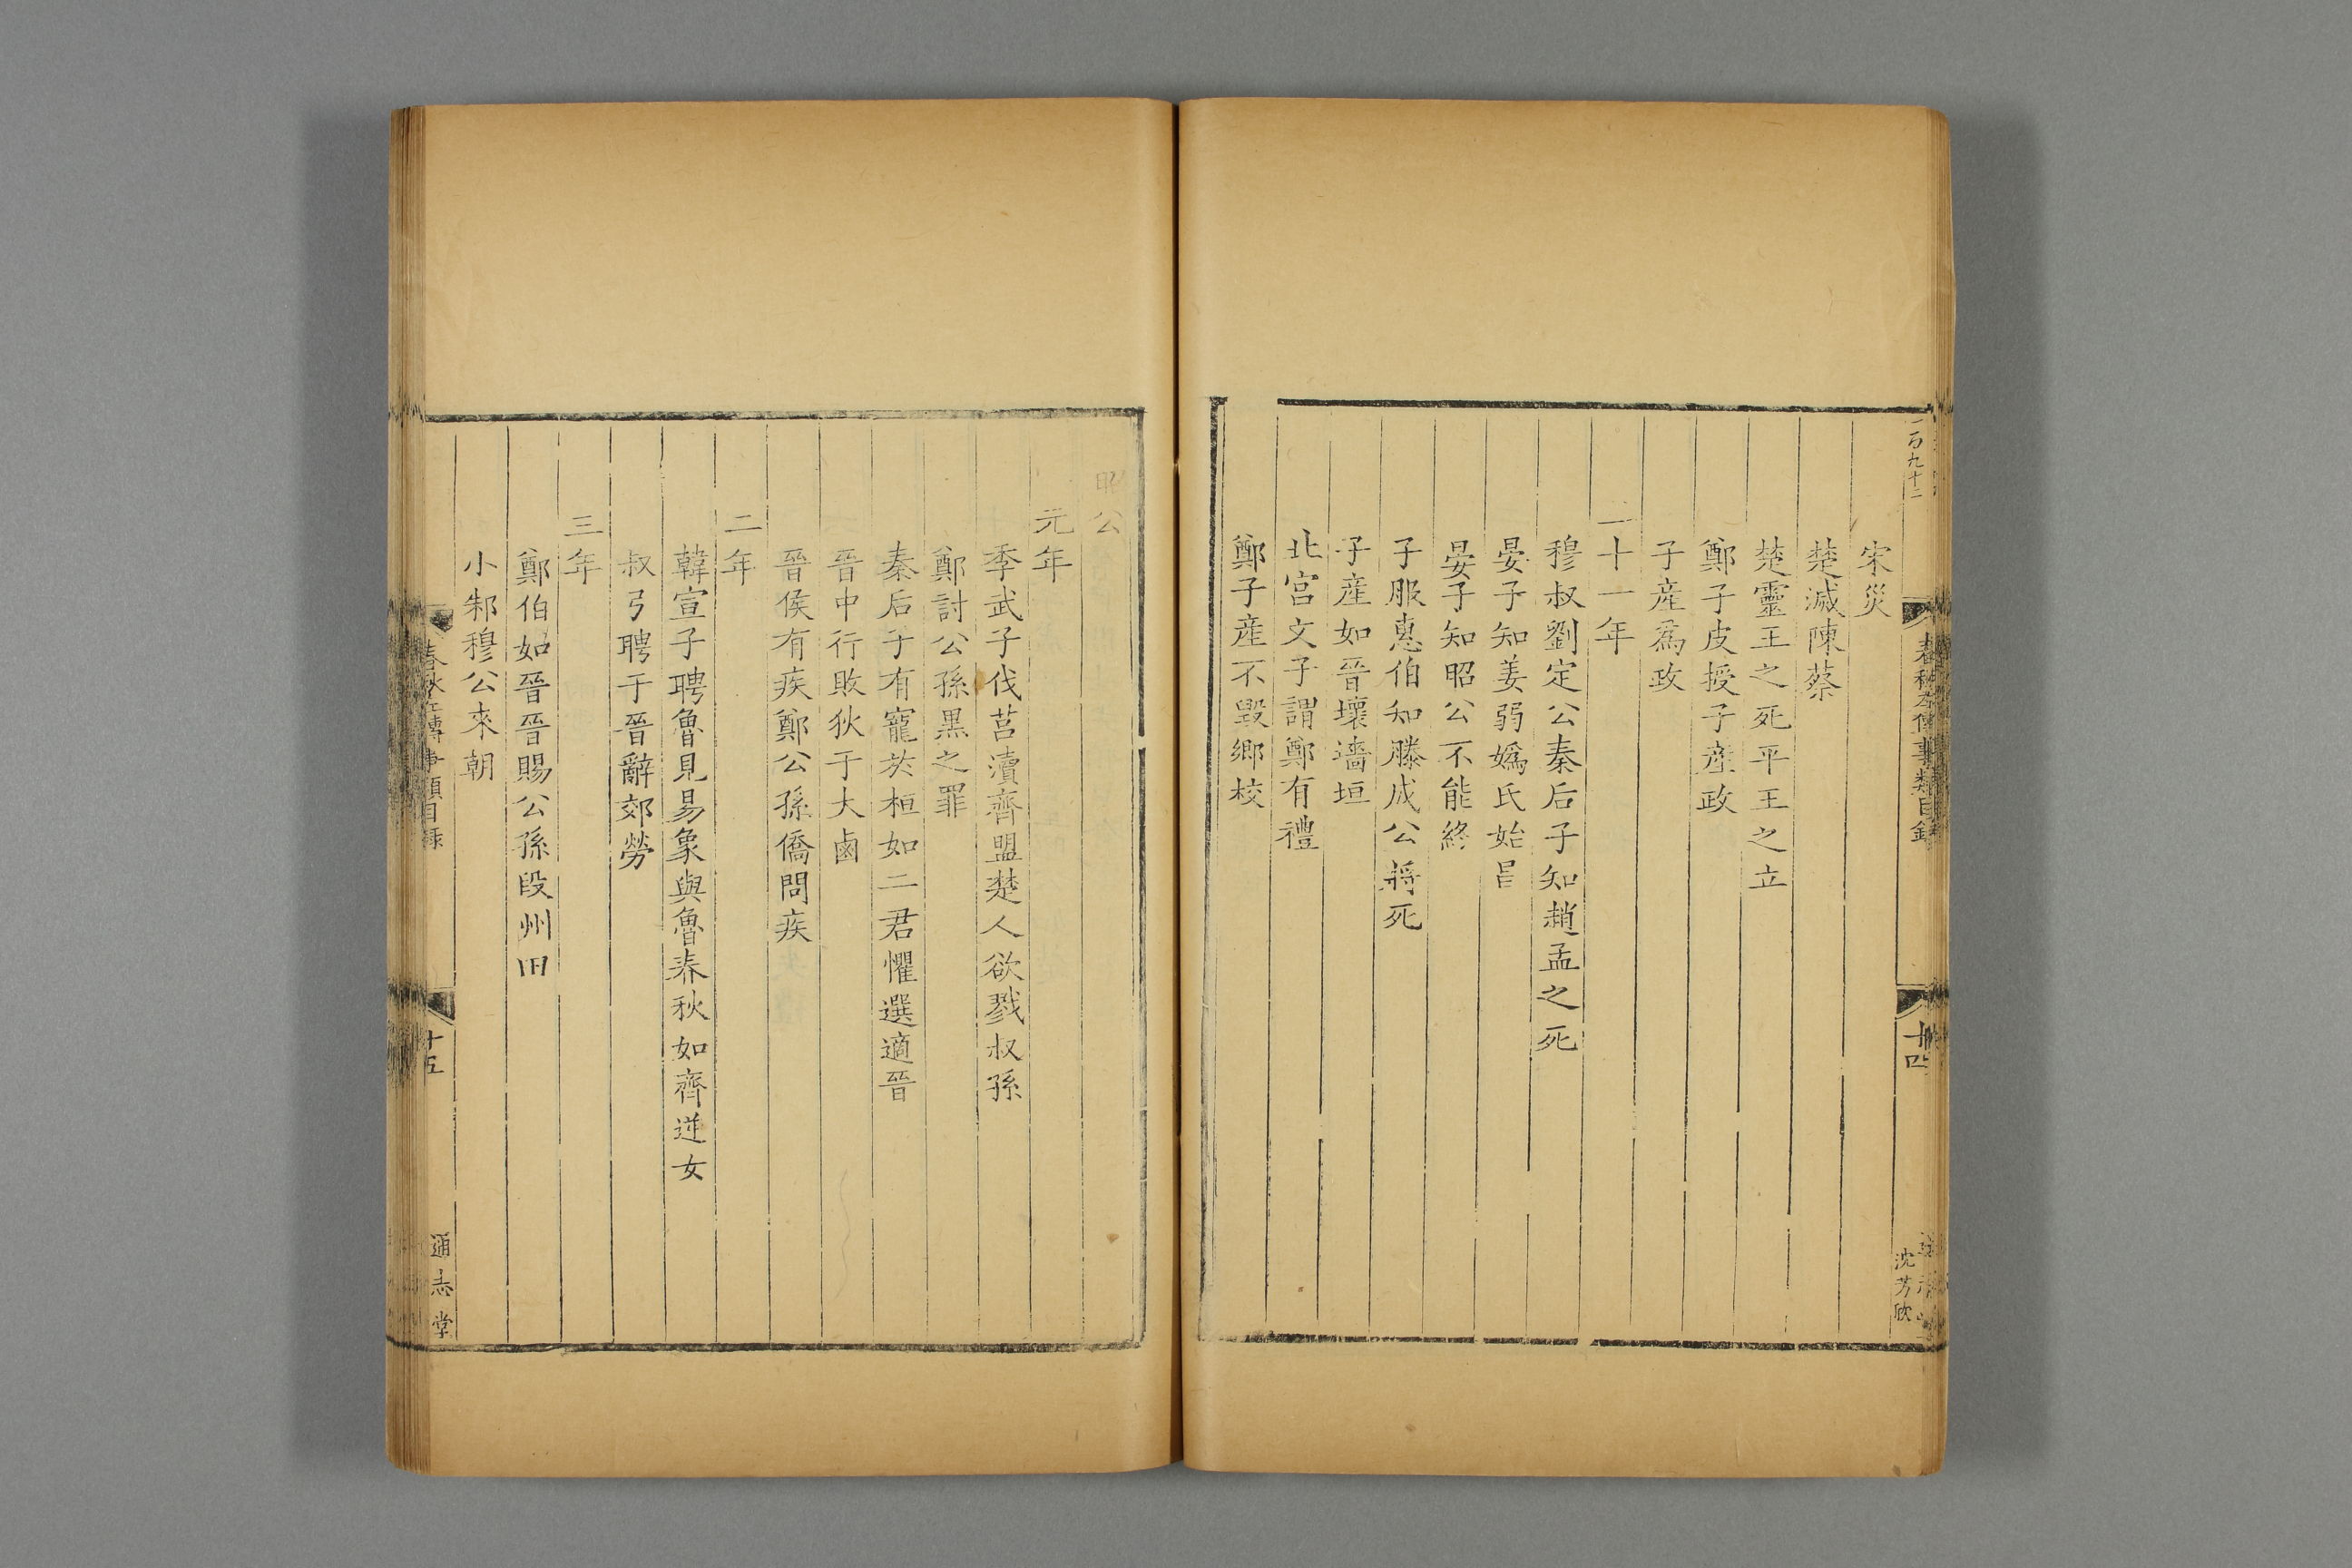 一百九十二
春秋左傳事類目錄
十四
沈芳
宋災
楚滅陳蔡
楚靈王之死平王之立
鄭子皮授子產政
子產爲政
二十一年
穆叔劉定公秦后子知趙孟之死
晏子知姜弱嬀氏始昌
晏子知昭公不能終
子服惠伯知滕成公將死
子產如晉壞牆垣
北宮文子謂鄭有禮
鄭子產不毀鄉校
昭公
元年
季武子伐莒瀆齊盟楚人欲戮叔孫
鄭討公孫黑之罪
秦后子有寵於桓如二君懼選適晉
晉中行敗狄于大鹵
晉侯有疾鄭公孫僑問疾
二年
韓宣子聘魯見易象與魯春秋如齊逆女
叔弓聘于晉辭郊勞
三年
鄭伯如晉晉賜公孫段州田
小邾穆公來朝
春秋左傳事類目錄
十五
通志堂